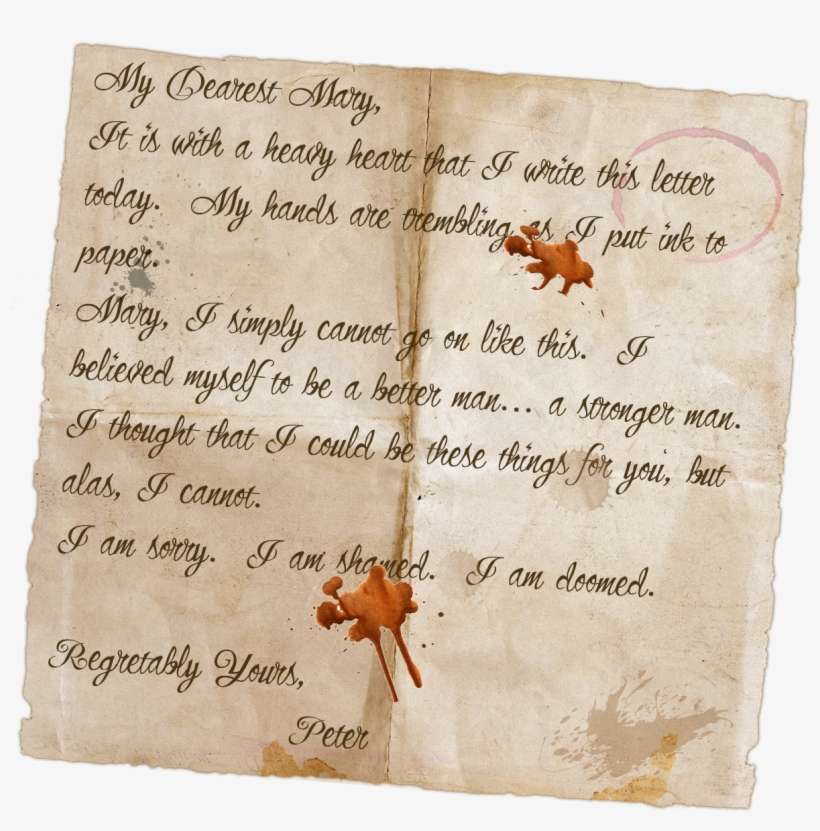 My Dearest Mary,
It is with a heavy heart that I write this letter
today. My hands are trembling as I put ink to
paper.
Mary, I simply cannot go on like this. I
believed myself to be a better man... a stronger man.
I thought that I could be these things for you, but
alas, I cannot.
I am sorry. I am shamed. I am doomed.
Regretably Yours,
Peter